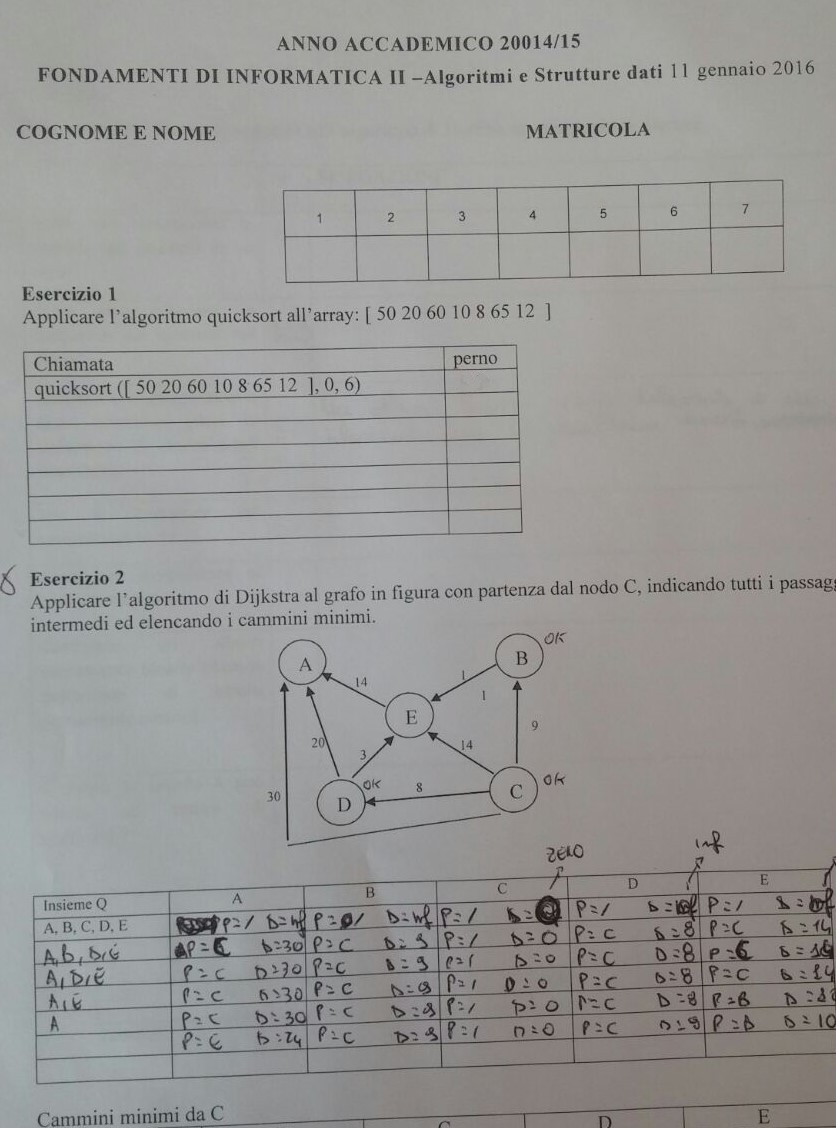 ANNO ACCADEMICO 20014/15
FONDAMENTI DI INFORMATICA II –Algoritmi e Strutture dati 11 gennaio 2016
COGNOME E NOME MATRICOLA
1 2 3 4 5 6 7
Esercizio 1
Applicare l'algoritmo quicksort all'array: [ 50 20 60 10 8 65 12 ]
Chiamata perno
quicksort ([ 50 20 60 10 8 65 12 ], 0, 6)
Esercizio 2
Applicare l'algoritmo di Dijkstra al grafo in figura con partenza dal nodo C, indicando tutti i passag
intermedi ed elencando i cammini minimi.
A B OK
14 1
E 1
20 3 14 9
30 D OK 8 C OK
ZERO inf
Insieme Q A B C D E
A, B, C, D, E P=/ D=inf P=/ D=inf P=/ D= P=/ D= P=/ D=
A, B, D, E P=C D=30 P=C D=9 P=/ D=0 P=C D=8 P=C D=14
A, D, E P=C D=30 P=C D=9 P=/ D=0 P=C D=8
A, E P=C D=30 P=C D=9 P=/ D=0 P=C D=8 P=C D=14
A P=C D=30 P=C D=9 P=/ D=0 P=C D=8 P=B
P=E D=24 P=C D=9 P=/ D=0 P=C D=8 P=B D=10
Cammini minimi da C
C D E